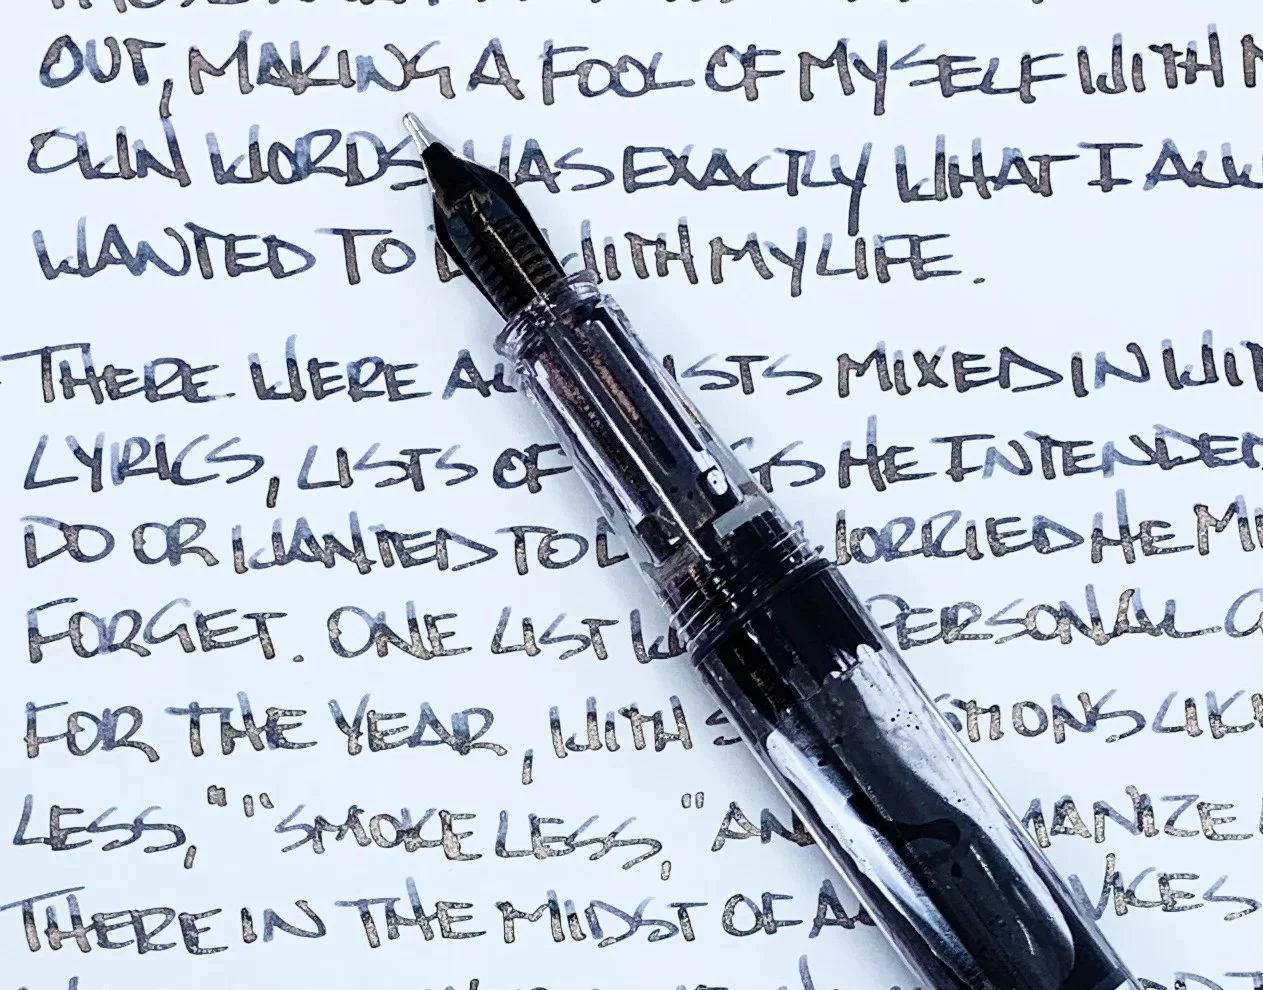 OUT, MAKING A FOOL OF MYSELF WITH
OWN WORDS WAS EXACTLY WHAT I
WANTED TO WITH MY LIFE.
THERE WERE LISTS MIXED IN
LYRICS, LISTS OF HE INTENDED
DO OR WANTED TO WORRIED HE
FORGET. ONE LIST PERSONAL
FOR THE YEAR, WITH
LESS," "SMOKE LESS," AND
THERE IN THE MIDST OF